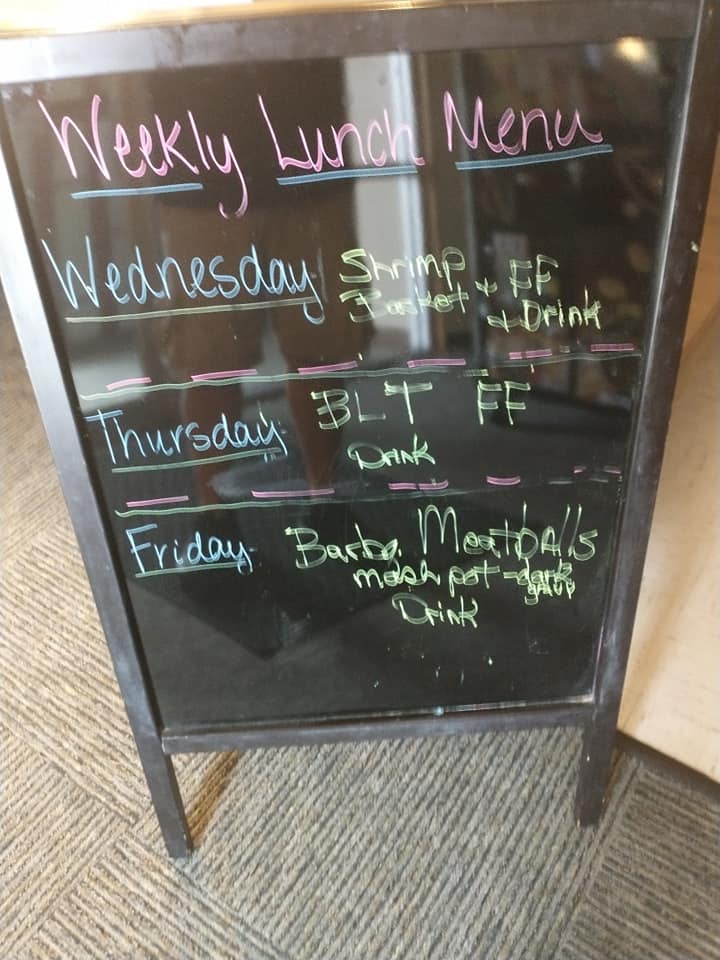 Weekly Lunch Menu
Wednesday Shrimp
Basket + FF
+ Drink
Thursday BLT FF
Drink
Friday Barbq. Meatballs
mash pot - dark
gravy
Drink